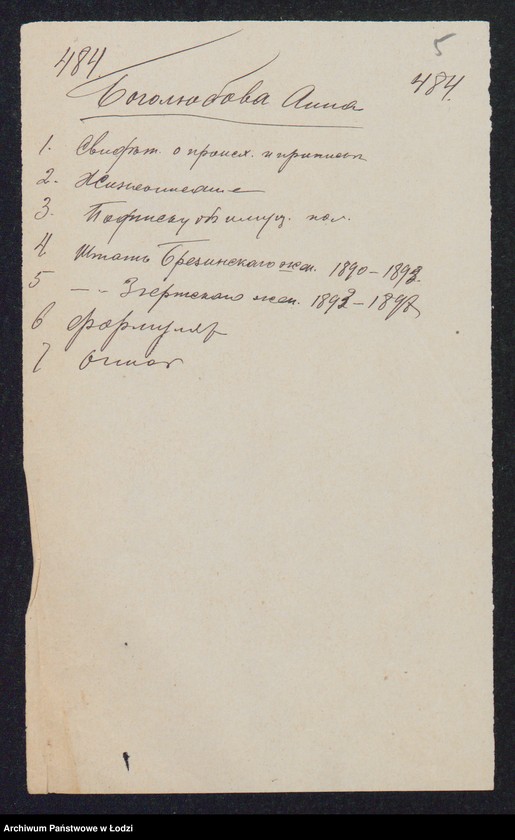 5
484. 484.
Боголюбова Анна
1. Свидѣт. о происх. и
2. Жизнеописание
3. Подписку об имущ. пол.
4 Штаты Брезинскаго жен. 1890-1893
5 — „ — Згержскаго жен. 1892-1897
6 формуляр
7
Archiwum Państwowe w Łodzi